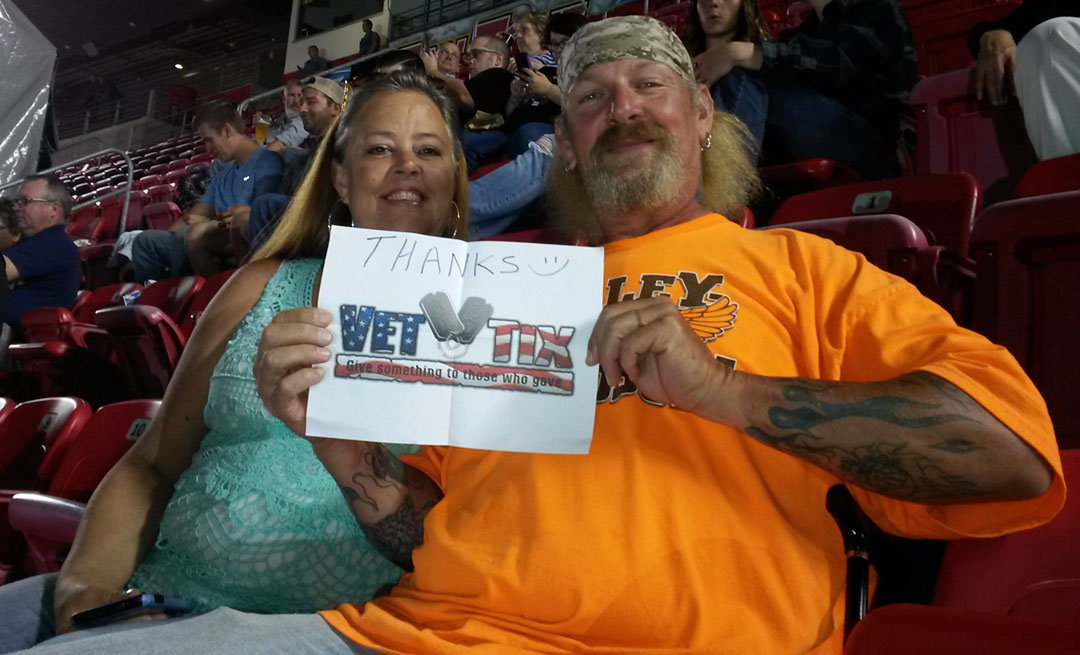 THANKS :)
VET TIX
Give something to those who gave
LEY
1
10